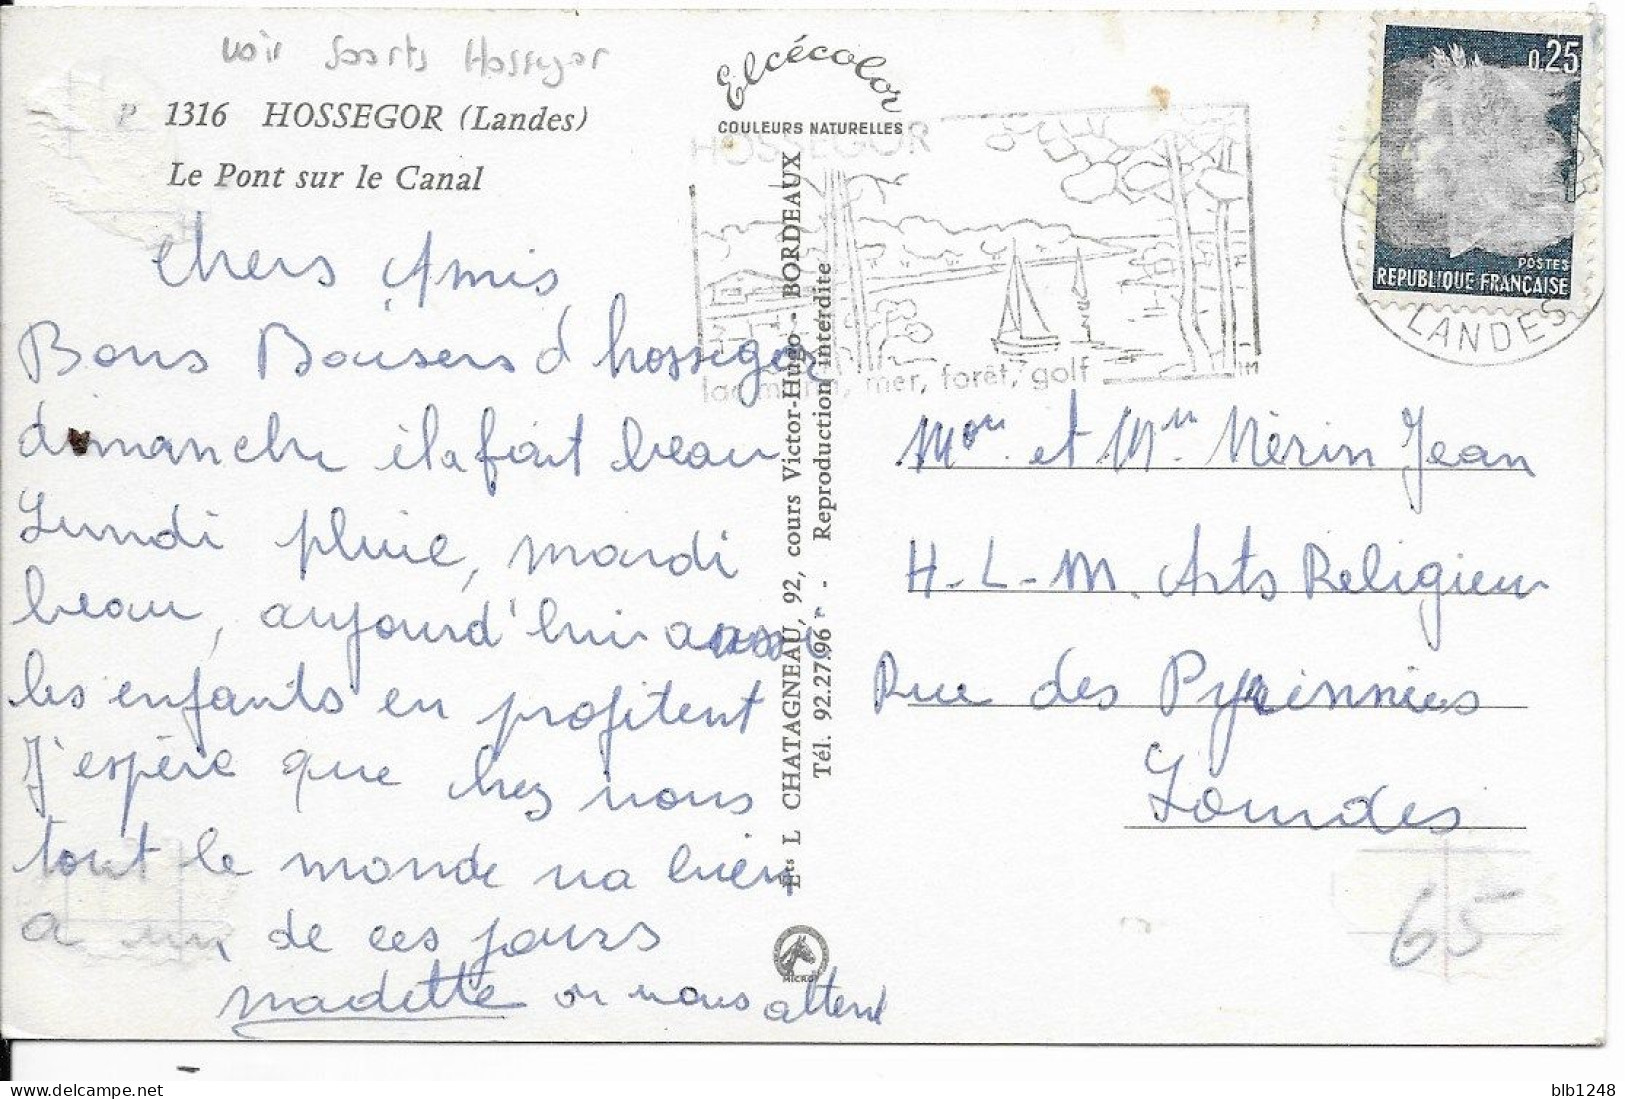 voir Soorts Hossegor
1316 HOSSEGOR (Landes)
Le Pont sur le Canal
Elcécolor
COULEURS NATURELLES
HOSSEGOR
mer, forêt, golf
0.25
POSTES
REPUBLIQUE FRANÇAISE
LANDES
Chers Amis
Bons Baisers d'hossegor
dimanche il a fait beau
Lundi pluie, mardi
beau, aujourd'hui aussi
les enfants en profitent
J'espère que chez vous
tout le monde va bien
a un de ces jours
nadette on vous attend
Ets L CHATAGNEAU, 92, cours Victor-Hugo - BORDEAUX
Tél. 92.27.96 - Reproduction interdite
MICRO
et Nérin Jean
H-L-M. Arts Religieux
Rue des Pyrinnées
Lourdes
65
blb1248